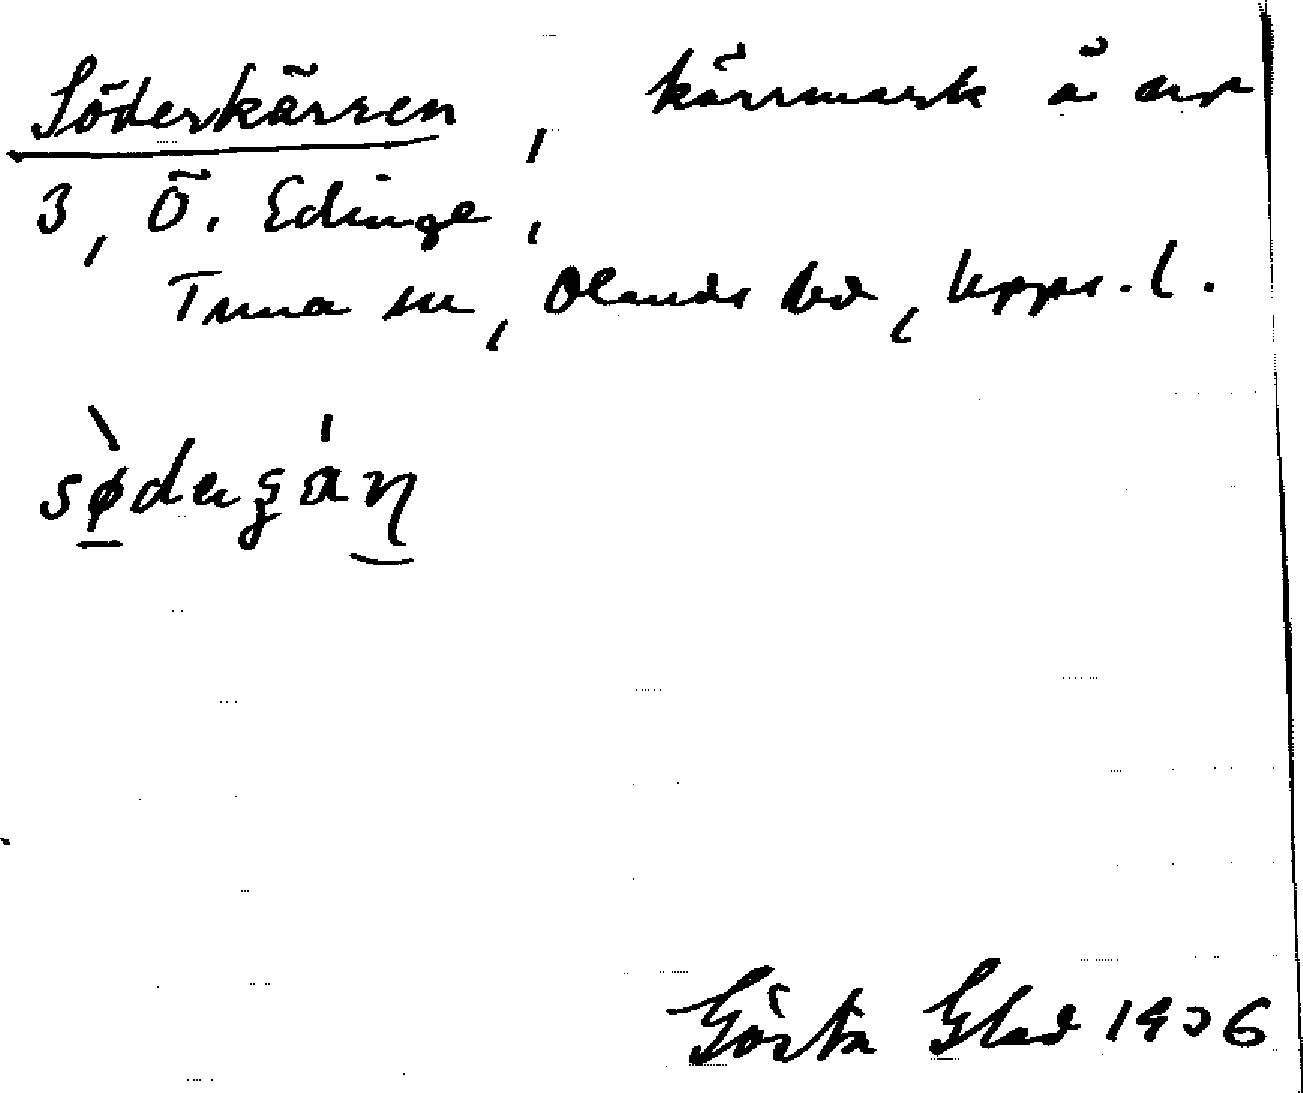 Söderkärren, kärrmark å äng
3, Ö. Edinge,
Tuna sn, Olands hd, Upps. l.
Gösta Glad 1936